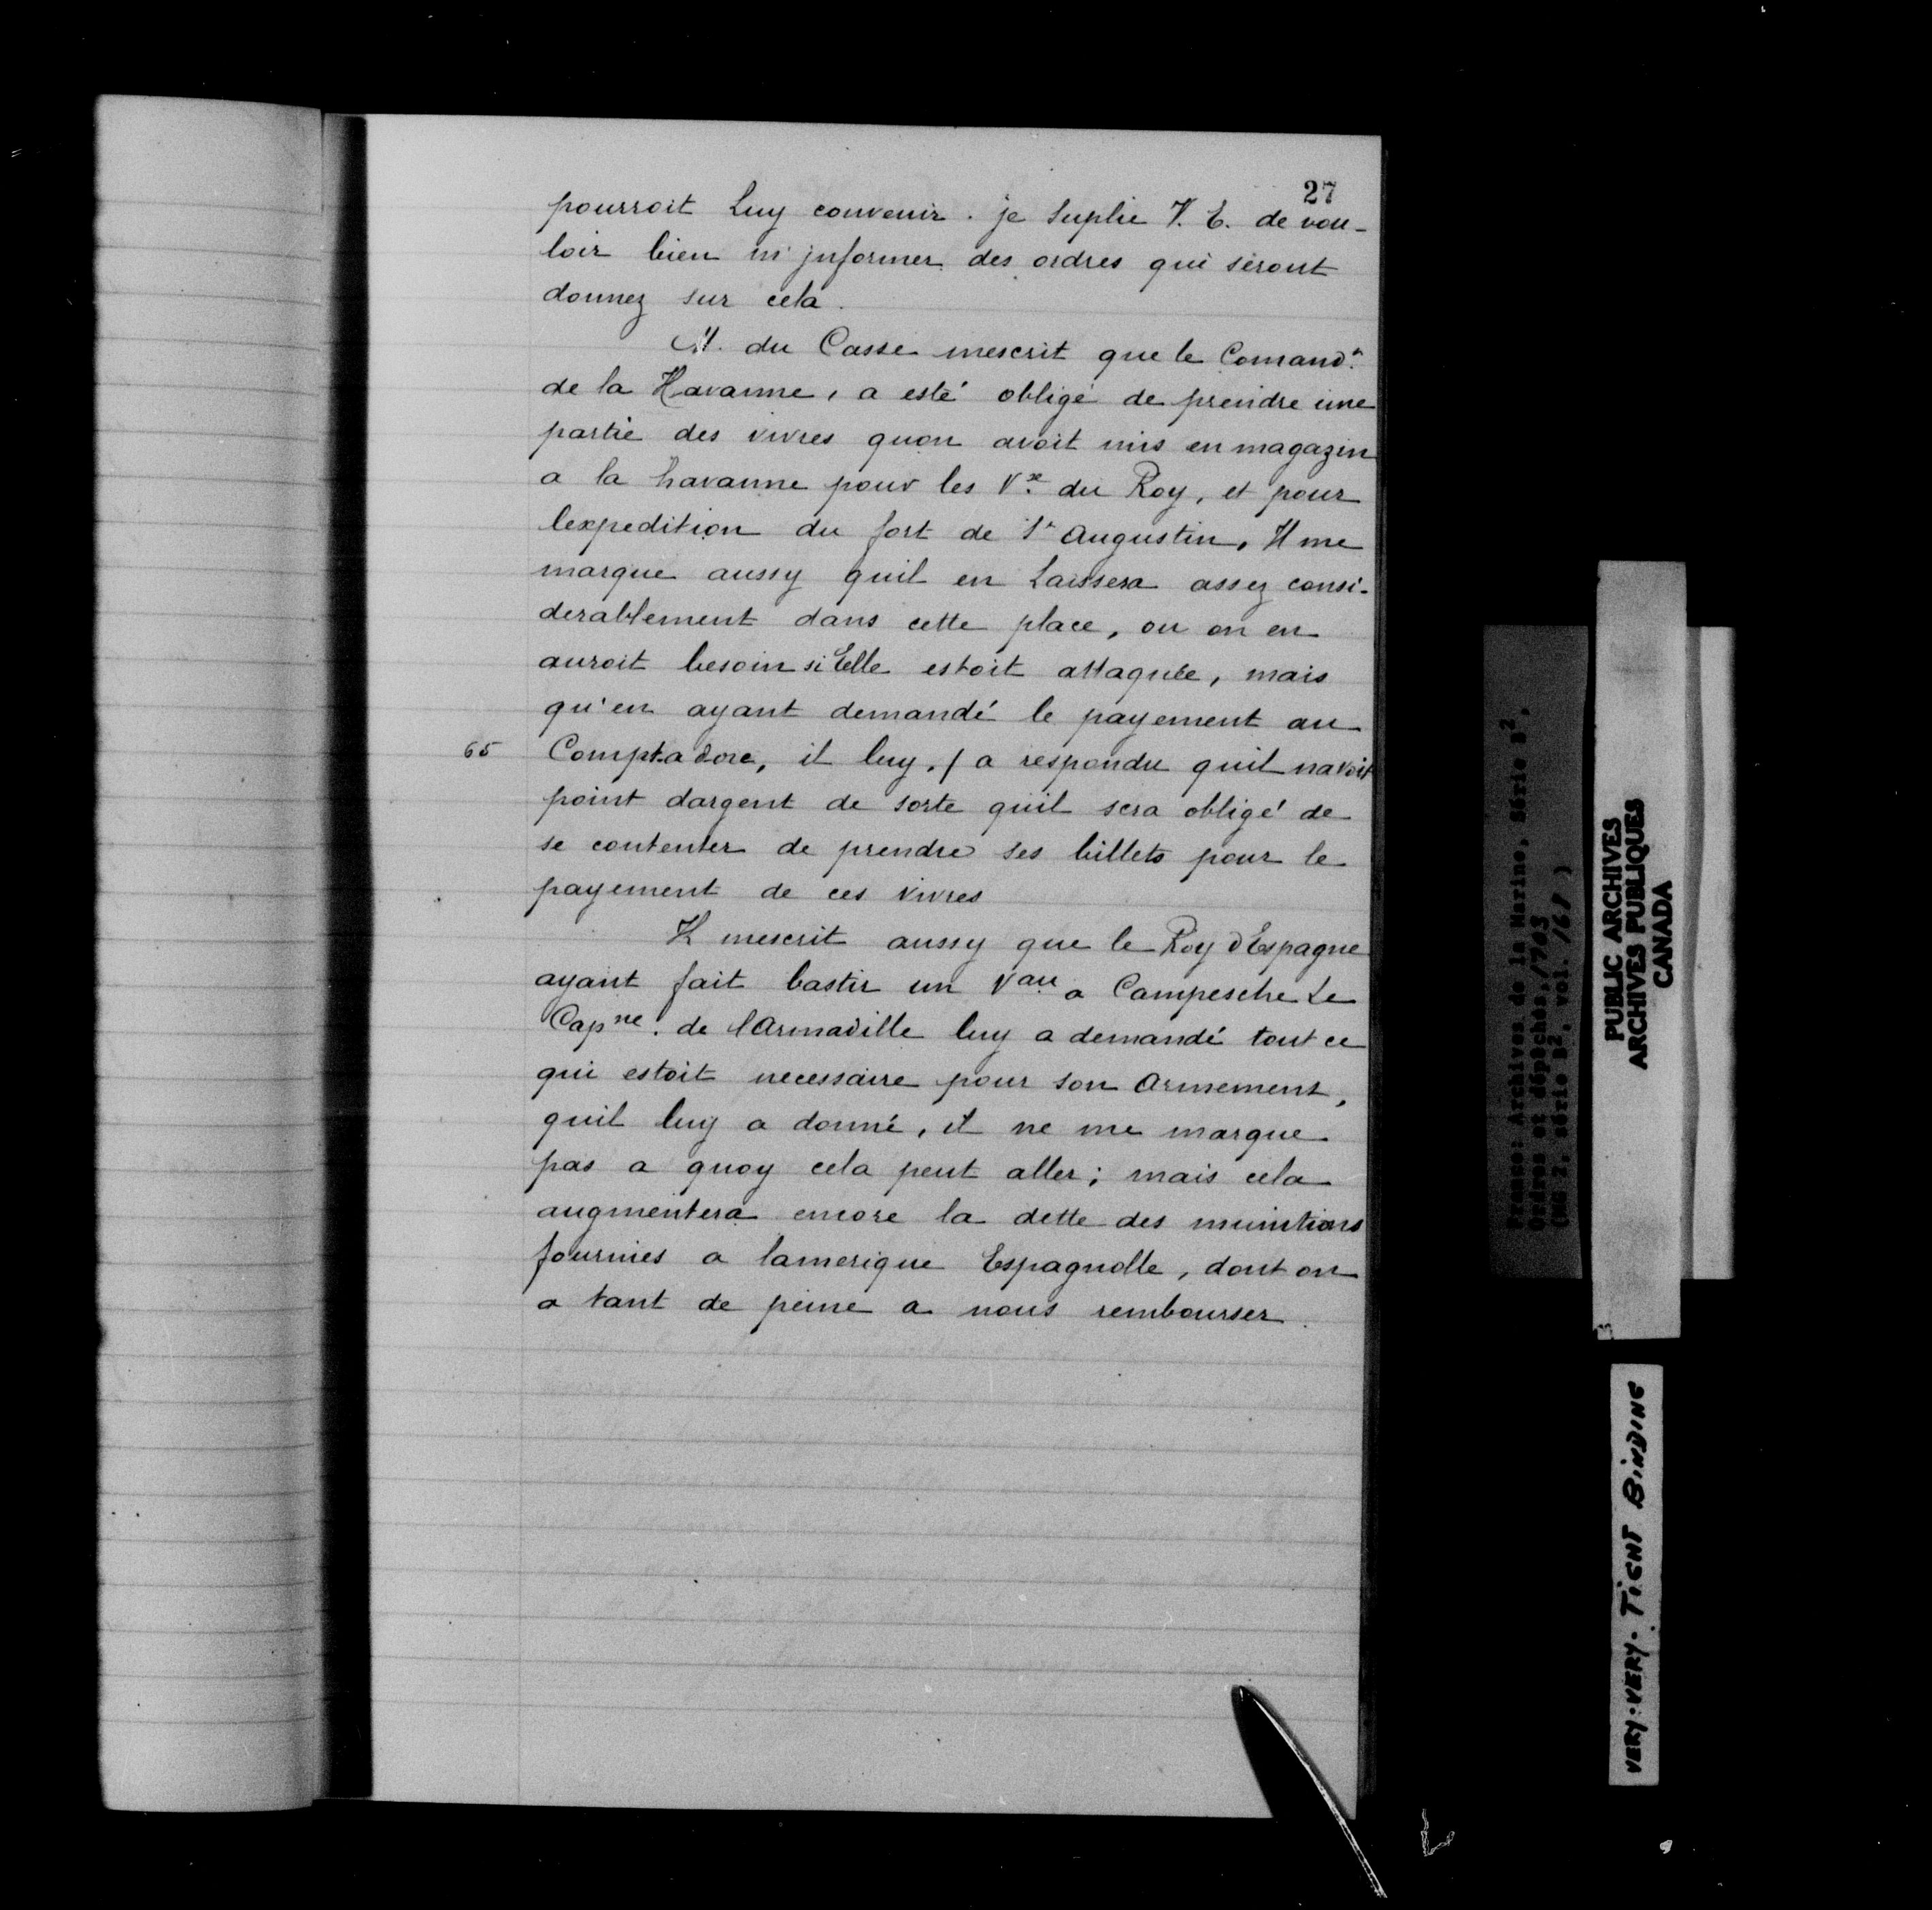 27
pourroit Luy convenir. je suplie V. E. de vou-
loir bien m'jnformer des ordres qui seront
donnez sur cela.
M. du Casse mescrit que le Comand.t
de la Havanne, a esté obligé de prendre une
partie des vivres quon avoit mis en magazin
a la havanne pour les V.x du Roy, et pour
lexpedition du fort de St Augustin, Il me
marque aussy quil en Laissera assez consi-
derablement dans cette place, ou on en
auroit besoin si Elle estoit attaquée, mais
qu'en ayant demandé le payement au
65 Comptadore, il luy, / a respondu quil navoit
point dargent de sorte quil sera obligé de
se contenter de prendre ses billets pour le
payement de ces vivres
Il mescrit aussy que le Roy d'Espagne
ayant fait bastir un Vau a Campesche Le
Capne. de l'Armadille luy a demandé tout ce
qui estoit necessaire pour son armement,
quil luy a donné, il ne me marque
pas a quoy cela peut aller; mais cela
augmentera encore la dette des munitions
fournies a lamerique Espagnolle, dont on
a tant de peine a nous rembourser.
France: Archives de la Marine, Série B2,
Ordres et dépêches, 1703
(MG 2, série B2, vol. 168)
PUBLIC ARCHIVES
ARCHIVES PUBLIQUES
CANADA
VERY-VERY. TIGHT BINDING